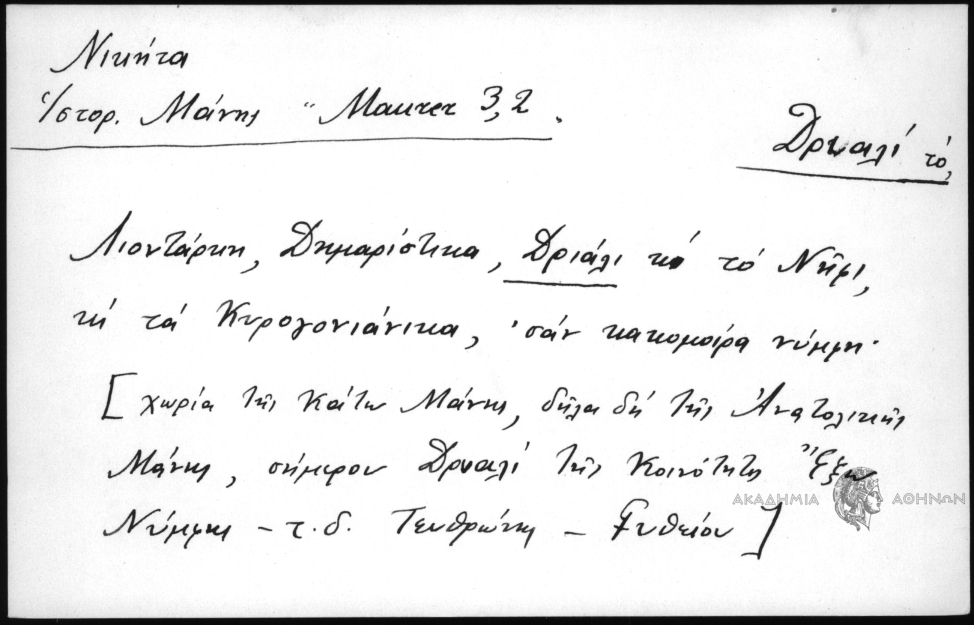 Νικήτα
Ἱστορ. Μάνης " Μaurer 3,2.
Δρυαλί τό,
Λιοντάρκη, Δημαρίστικα, Δριάλι κὶ τό Νῆμι,
κί τά Κυρογονιάνικα, σάν κακομοίρα νύμμη·
[χωρία τῆς Κάτω Μάνης, δῆλα δή τῆς Ἀνατολικῆς
Μάνης, σήμερον Δρυαλί τῆς Κοινότητς Ἔξω
Νύμφης - τ.δ. Τευθρώνης - Γυθείου]
ΑΚΑΔΗΜΙΑ ΑΘΗΝΩΝ